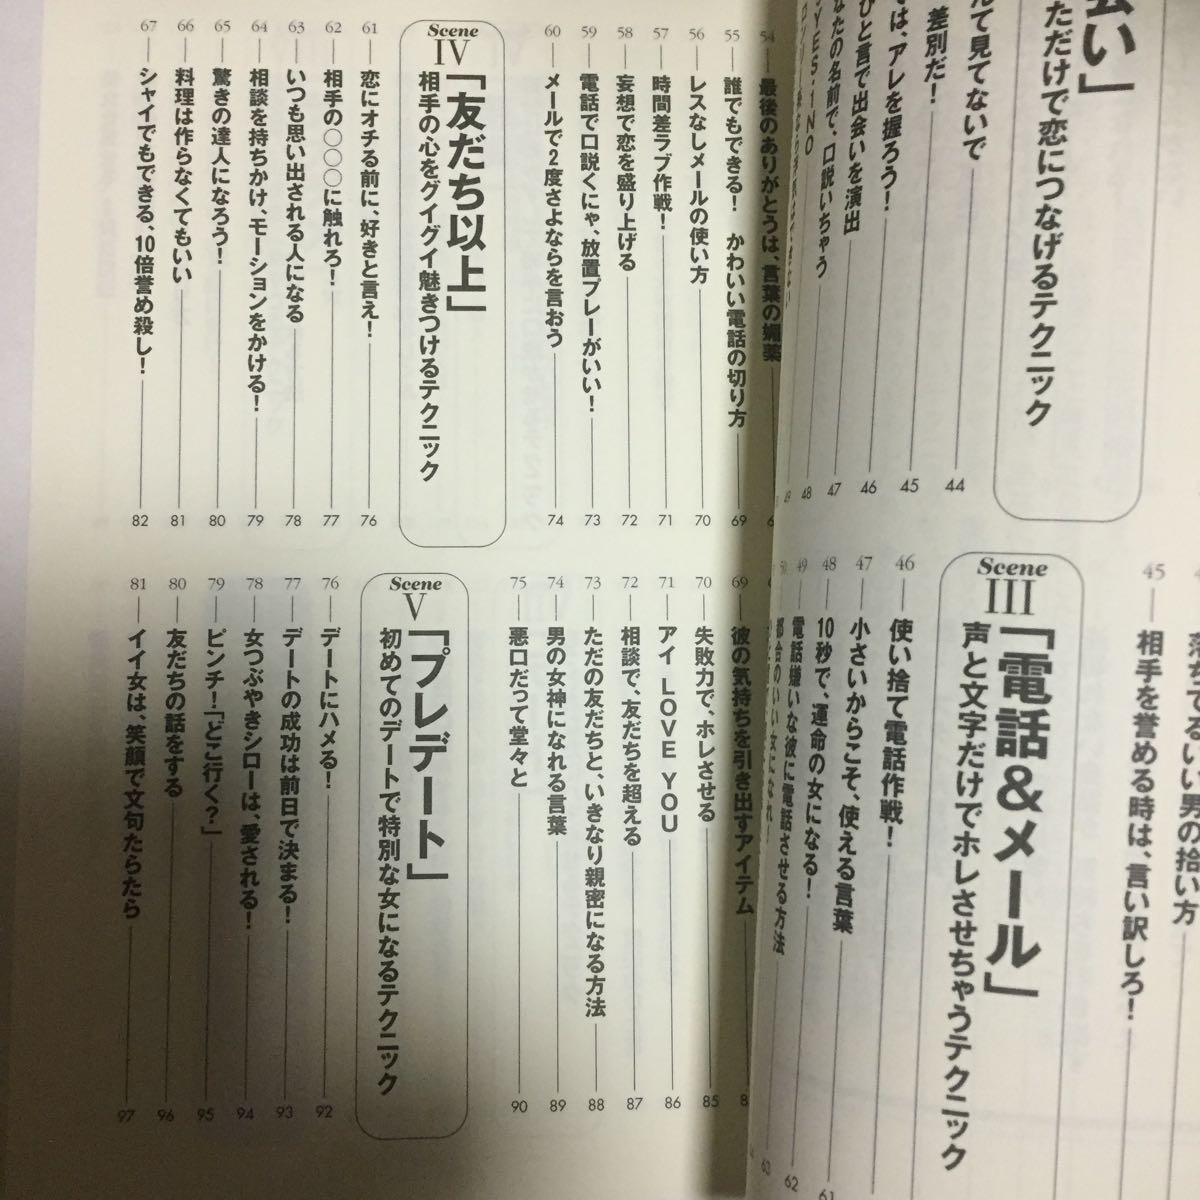 会い」
ただけで恋につなげるテクニック
んて見てないで
44
差別だ！
45
では、アレを握ろう！
46
ひと言で出会いを演出
47
なたの名前で、口説いちゃう
48
49
45 相手を誉める時は、言い訳しろ！
落ちてるいい男の拾い方
Scene III
「電話&メール」
声と文字だけでホレさせちゃうテクニック
46 使い捨て電話作戦！
47 小さいからこそ、使える言葉
61
48 10秒で、運命の女になる！
62
49 電話嫌いな彼に電話させる方法
63
都合のいい女になれ！
54 最後のありがとうは、言葉の媚薬
55 誰でもできる！ かわいい電話の切り方 69
56 レスなしメールの使い方 70
57 時間差ラブ作戦！ 71
58 妄想で恋を盛り上げる 72
59 電話で口説くにゃ、放置プレーがいい！ 73
60 メールで2度さよならを言おう 74
Scene IV
「友だち以上」
相手の心をグイグイ魅きつけるテクニック
61 恋にオチる前に、好きと言え！ 76
62 相手の○○○に触れろ！ 77
63 いつも思い出される人になる 78
64 相談を持ちかけ、モーションをかける！ 79
65 驚きの達人になろう！ 80
66 料理は作らなくてもいい 81
67 シャイでもできる、10倍誉め殺し！ 82
69 彼の気持ちを引き出すアイテム
70 失敗力で、ホレさせる 85
71 アイ LOVE YOU 86
72 相談で、友だちを超える 87
73 ただの友だちと、いきなり親密になる方法 88
74 男の女神になれる言葉 89
75 悪口だって堂々と 90
Scene V
「プレデート」
初めてのデートで特別な女になるテクニック
76 デートにハメる！ 92
77 デートの成功は前日で決まる！ 93
78 女つぶやきシローは、愛される！ 94
79 ピンチ！「どこ行く？」 95
80 友だちの話をする 96
81 イイ女は、笑顔で文句たらたら 97